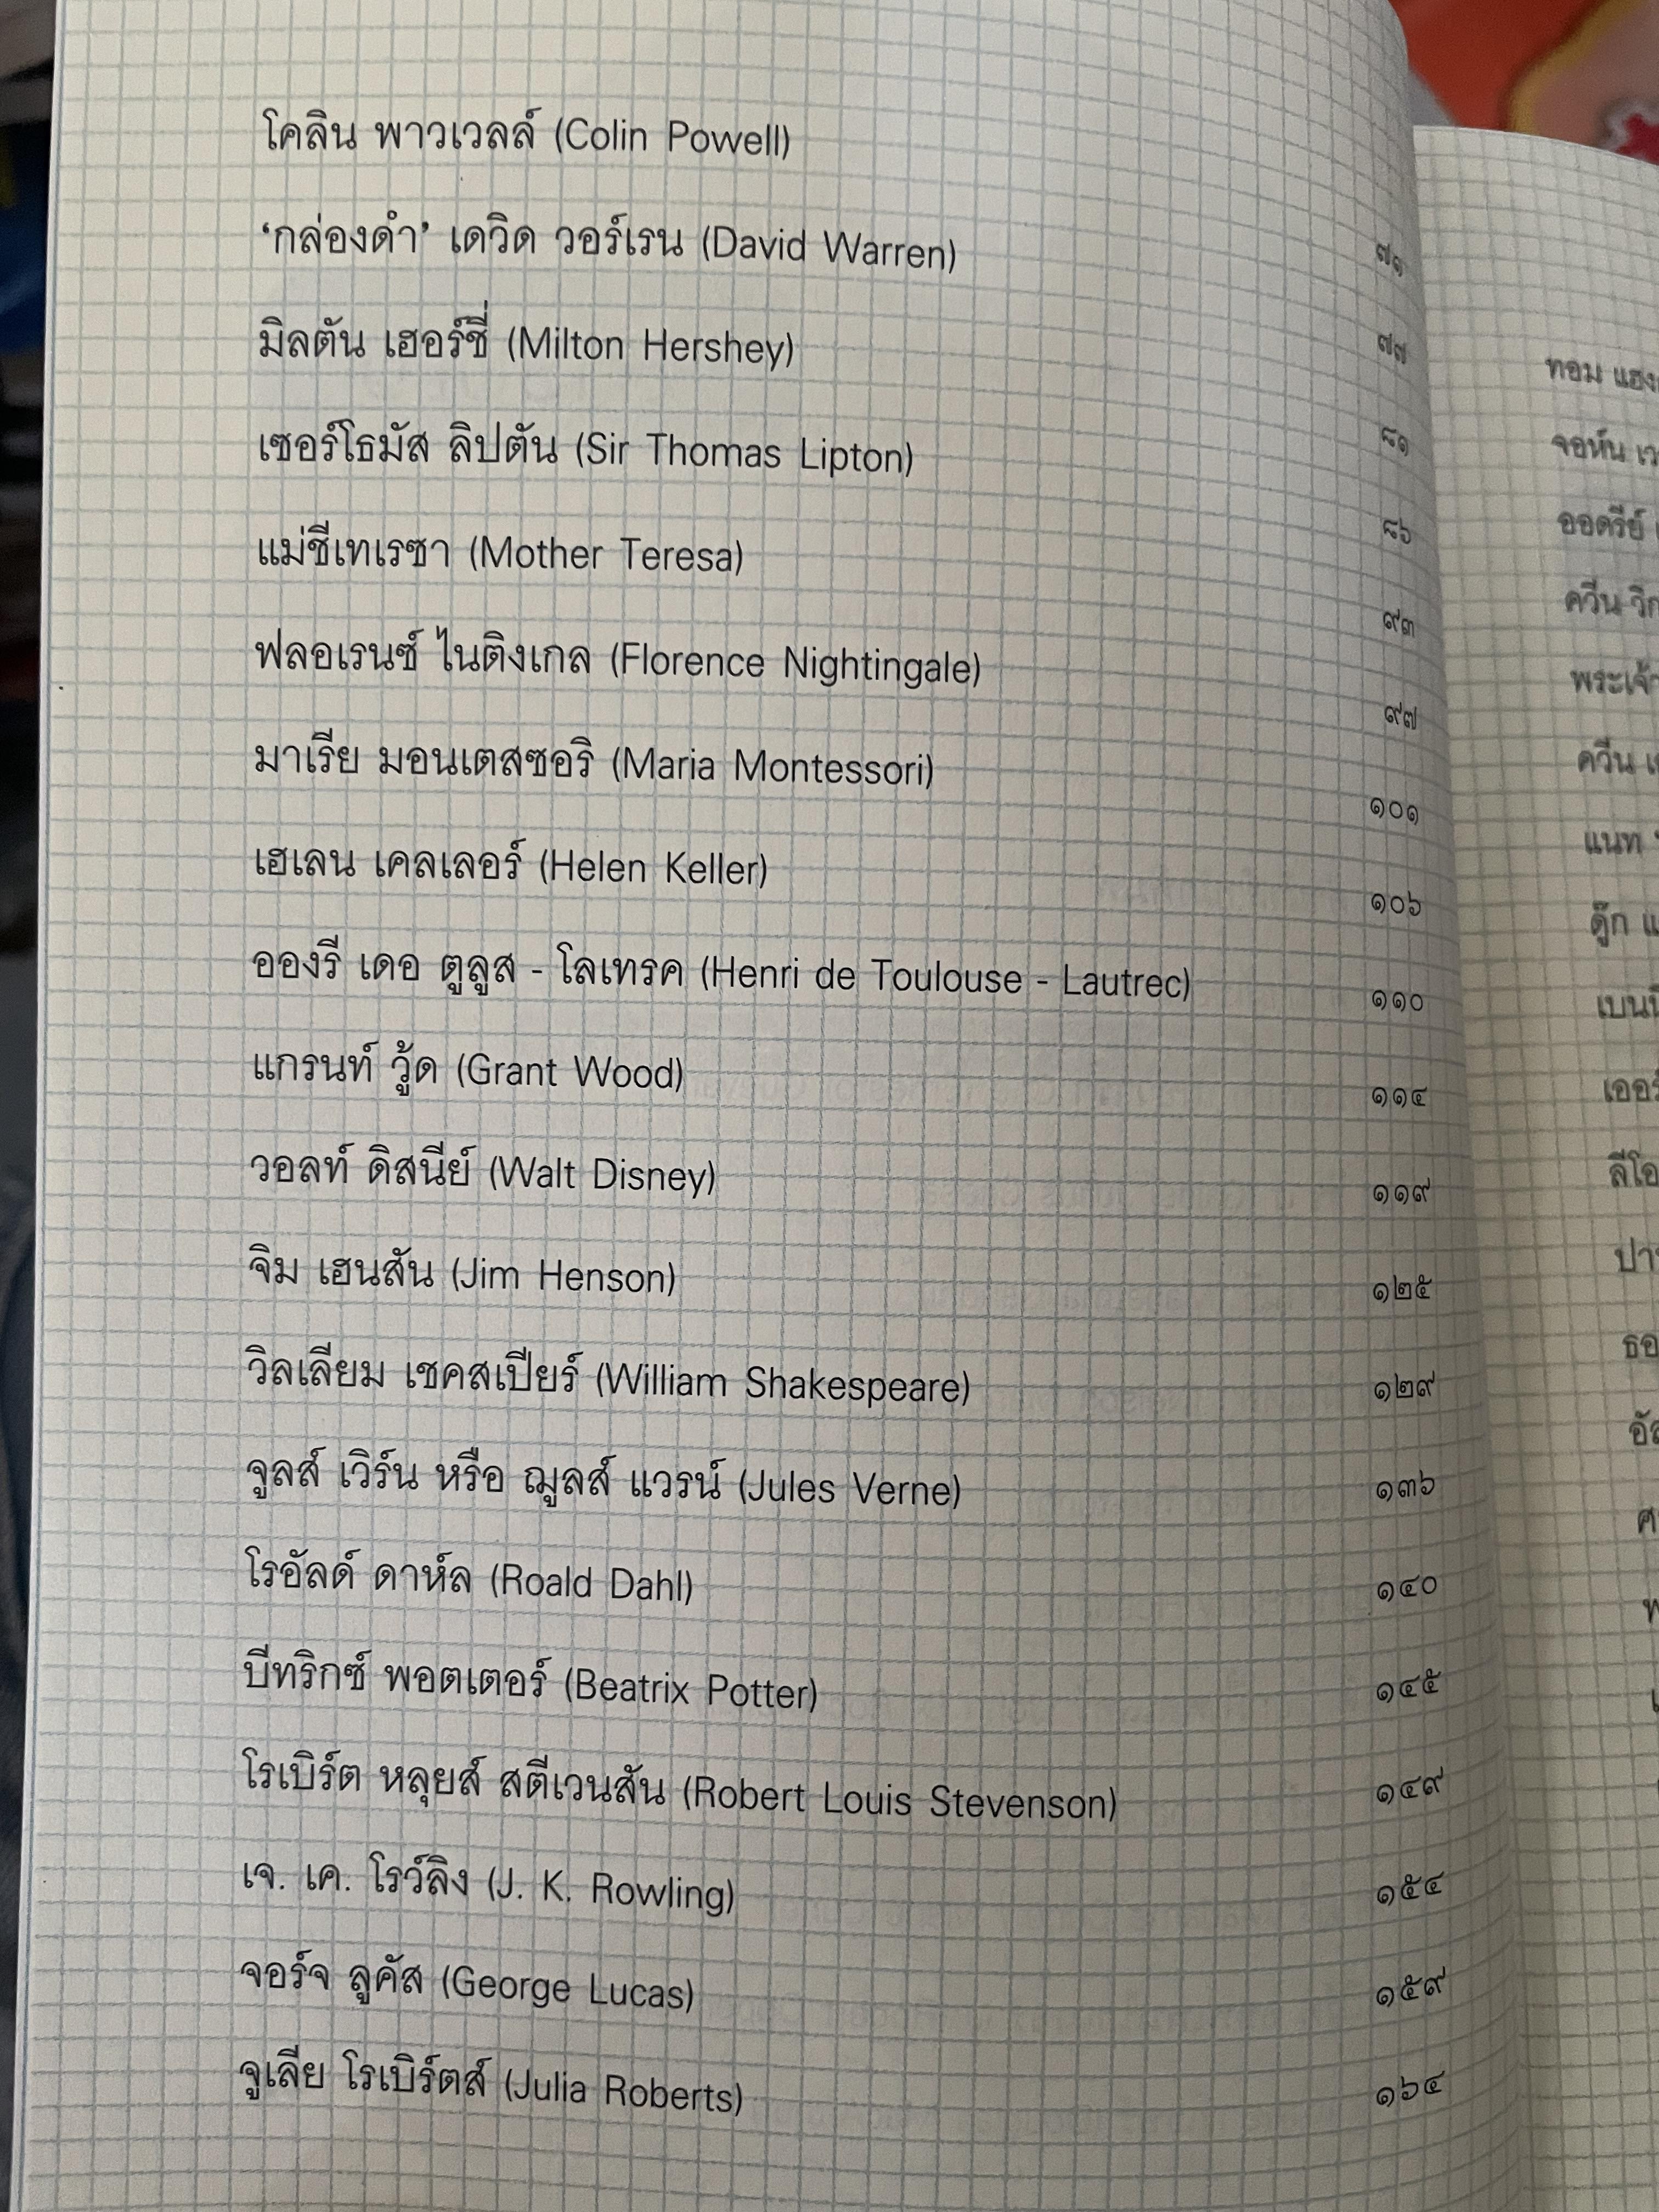 โคลิน พาวเวลล์ (Colin Powell) ๗๑
‘กล่องดำ’ เดวิด วอร์เรน (David Warren) ๗๗
มิลตัน เฮอร์ชี่ (Milton Hershey) ๘๑
เซอร์โธมัส ลิปตัน (Sir Thomas Lipton) ๘๖
แม่ชีเทเรซา (Mother Teresa) ๙๓
ฟลอเรนซ์ ไนติงเกล (Florence Nightingale) ๙๗
มาเรีย มอนเตสซอริ (Maria Montessori) ๑๐๑
เฮเลน เคลเลอร์ (Helen Keller) ๑๐๖
อองรี เดอ ตูลูส - โลเทรค (Henri de Toulouse - Lautrec) ๑๑๐
แกรนท์ วู้ด (Grant Wood) ๑๑๔
วอลท์ ดิสนีย์ (Walt Disney) ๑๑๙
จิม เฮนสัน (Jim Henson) ๑๒๕
วิลเลียม เชคสเปียร์ (William Shakespeare) ๑๒๙
จูลส์ เวิร์น หรือ ฌูลส์ แวรน์ (Jules Verne) ๑๓๖
โรอัลด์ ดาห์ล (Roald Dahl) ๑๔๐
บีทริกซ์ พอตเตอร์ (Beatrix Potter) ๑๔๕
โรเบิร์ต หลุยส์ สตีเวนสัน (Robert Louis Stevenson) ๑๔๙
เจ. เค. โรว์ลิง (J. K. Rowling) ๑๕๔
จอร์จ ลูคัส (George Lucas) ๑๕๙
จูเลีย โรเบิร์ตส์ (Julia Roberts) ๑๖๔
ทอม
จอห์น
ออดรีย์
ควีน
ควีน
แนท